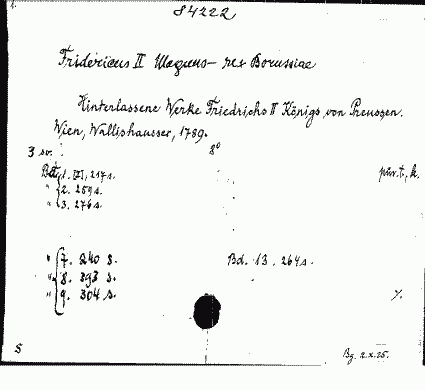 84222
Fridericus II Magnus – rex Borussiae
Hinterlassene Werke Friedrichs II Königs von Preussen.
Wien, Wallishausser, 1789.
3 sv. 8°
Bd. 1. [I], 217 s. přív. t., k.
" 2. 259 s.
" 3. 276 s.
" 7. 240 s. Bd. 13. 264 s.
" 8. 393 s.
" 9. 304 s. /.
S Bg. 2.X.25.